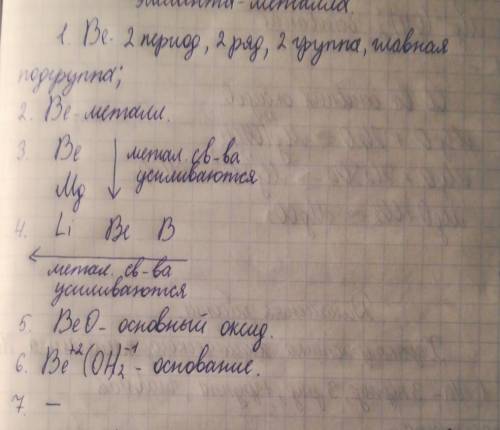 элемента-металла
1. Be. 2 период, 2 ряд, 2 группа, главная
подгруппа;
2. Be-металл.
3. Be метал. св-ва
Mg усиливаются
4. Li Be B
метал. св-ва
усиливаются
5. BeO- основный оксид.
6. Be⁺²(OH)₂⁻¹ - основание.
7. —